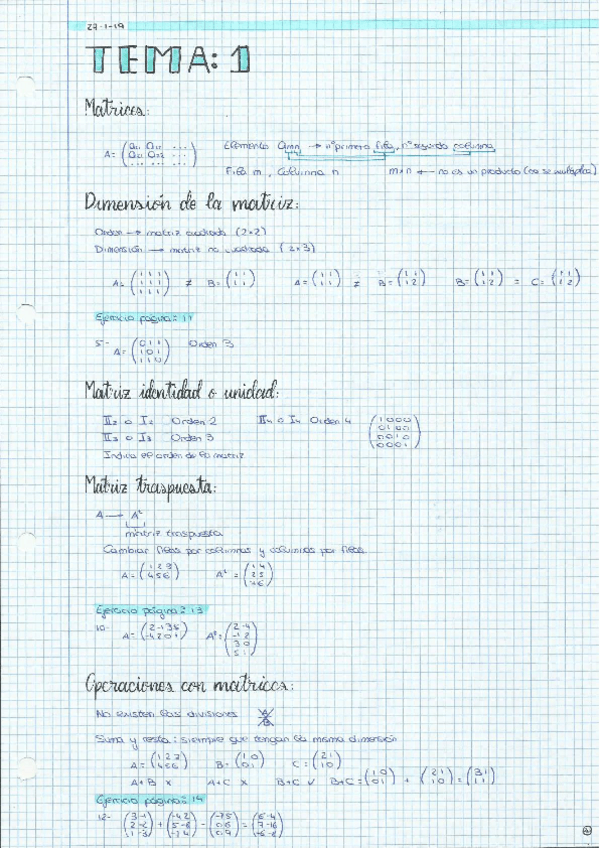 27-1-19
TEMA: 1
Matrices:
A = (a₁₁ a₁₂ ... a₂₁ a₂₂ ... ... ... ...) Elemento amn → nº primero fila, nº segundo columna
Fila m, Columna n m×n ← no es un producto (no se multiplica)
Dimensión de la matriz:
Orden → matriz cuadrada (2×2)
Dimensión → matriz no cuadrada (2×3)
A = (1 1 1 1 1 1 1 1 1) ≠ B = (1 1 1 1) A = (1 1 1 1) ≠ B = (1 1 1 2) B = (1 1 1 2) = C = (1 1 1 2)
Ejercicio página: 11
5- A = (0 1 1 1 0 1 1 1 0) Orden 3
Matriz identidad o unidad:
II₂ o I₂ Orden 2 II₄ o I₄ Orden 4 (1 0 0 0 0 1 0 0 0 0 1 0 0 0 0 1)
II₃ o I₃ Orden 3
Indica el orden de la matriz
Matriz traspuesta:
A → Aᵗ
matriz traspuesta
Cambiar filas por columnas y columnas por filas
A = (1 2 3 4 5 6) Aᵗ = (1 4 2 5 3 6)
Ejercicio página: 13
10- A = (2 -1 3 5 -4 2 0 1) Aᵗ = (2 -4 -1 2 3 0 5 1)
Operaciones con matrices:
No existen las divisiones A/B
Suma y resta: siempre que tengan la misma dimensión
A = (1 2 3 4 5 6) B = (1 0 0 1) C = (2 1 1 0)
A+B × A+C × B+C ✓ B+C = (1 0 0 1) + (2 1 1 0) = (3 1 1 1)
Ejercicio página: 14
12-